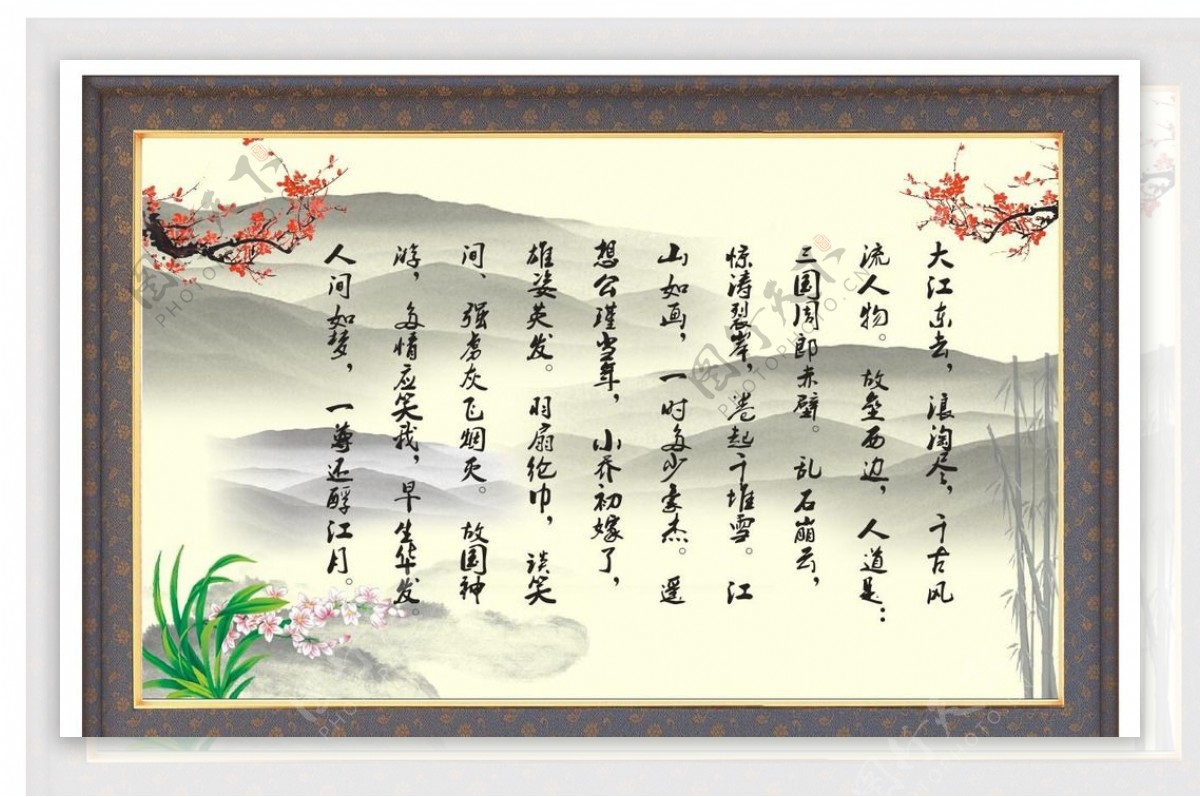 大江东去，浪淘尽，千古风
流人物。故垒西边，人道是：
三国周郎赤壁。乱石崩云，
惊涛裂岸，卷起千堆雪。江
山如画，一时多少豪杰。遥
想公瑾当年，小乔初嫁了，
雄姿英发。羽扇纶巾，谈笑
间、强虏灰飞烟灭。故国神
游，多情应笑我，早生华发。
人间如梦，一尊还酹江月。
图行天下
PHOTOPHOTO.CN